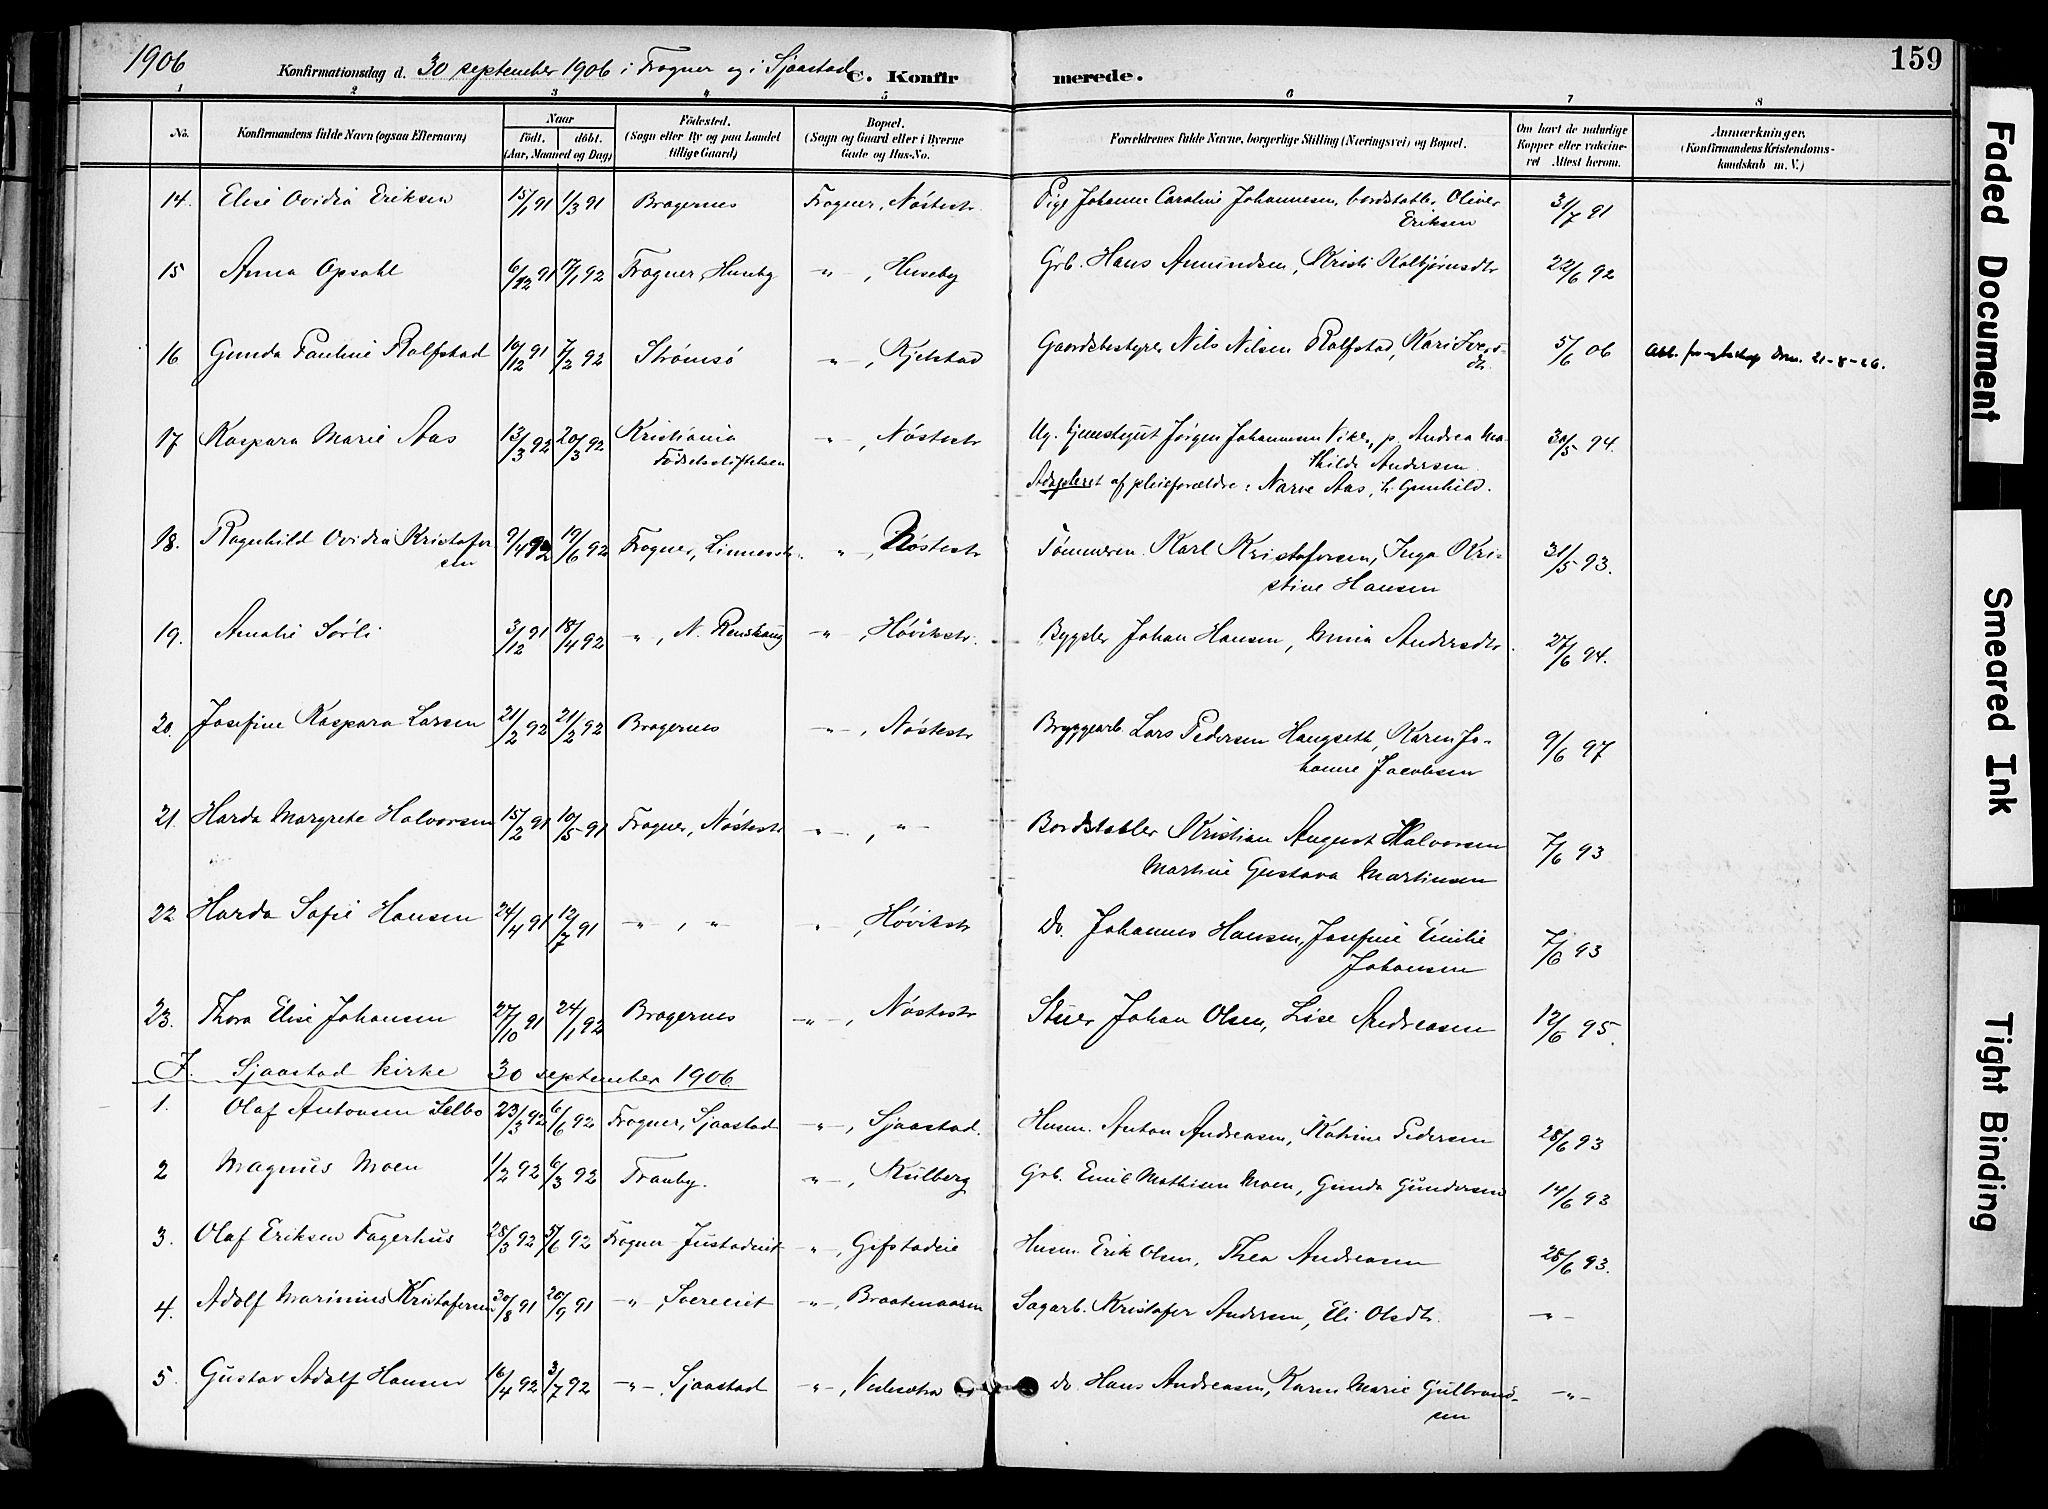 1906
Konfirmationsdag d. 30 september 1906 i Frogner og i Sjaastad C. Konfirmerede. 159
1 2 3 4 5 6 7 8
No. Konfirmandens fulde Navn (ogsaa Efternavn) Naar Födt. döbt. (Aar, Maaned og Dag) Födested. (Sogn eller By og paa Landet tillige Gaard) Bopæl. (Sogn og Gaard eller i Byerne Gade og Hus-No. Forældrenes fulde Navne, borgerlige Stilling (Næringsvei) og Bopæl. Om havt de naturlige Kopper eller vakcineret Attest herom. Anmærkninger. (Konfirmandens Kristendomskundskab m. V.)
14. Elise Ovidia Eriksen 15/1 91 1/3 91 Bragernes Frogner, Nøstestr. Pige Johanne Caroline Johannesen, bordstabler Oliver 31/7 91
Eriksen
15 Anna Opsahl 6/12 91 17/1 92 Frogner, Huseby -"-, Huseby Grb. Hans Amundsen, Kristi Kolbjørnsdtr 22/6 92
16 Gunda Pauline Rolfstad 10/12 91 7/2 92 Strømsø -"-, Kjelstad Gaardsbestyrer Nils Nilsen Rolfstad, Kari Iversdtr. 5/6 06 21-8-26.
17 Kaspara Marie Aas 13/3 92 20/3 92 Kristiania -"-, Nøstestr Ug. Jørgen Johannesen Viker, p. Andrea Ma- 30/5 94.
Fødselsstiftelsen thilde Andersen
Adopteret af pleieforældre: Narve Aas, h. Gunhild.
18. Ragnhild Ovidia Kristofer 9/4 92 19/6 92 Frogner, Linnesstr. -"-, Nøstestr Tømmerm. Karl Kristofersen, Inga Kri- 31/5 93.
sen stine Hansen
19. Amalie Sørli 3/12 91 18/4 92 -"-, N. Renskaug -"-, Høvikstr. Bygsler Johan Hansen, Annia Andersdtr. 27/6 94.
20. Josefine Kaspara Larsen 21/2 92 21/2 92 Bragernes -"-, Nøstestr Bryggearb. Lars Pedersen Haugseth, Karen Jo- 9/6 97
hanne Jacobsen
21. Harda Margrete Halvorsen 15/2 91 10/5 91 Frogner, Nøstestr -"-, -"- Bordstabler Kristian August Halvorsen 7/6 93
Martine Gustava Martinsen
22 Harda Sofie Hansen 24/4 91 12/7 91 -"-, " -"-, Høvikstr Do. Johannes Hansen, Josefine Emilie 7/6 93
Johansen
23. Thora Elise Johansen 27/10 91 24/1 92 Bragernes -"-, Nøstestr Stuer Johan Olsen, Lise Andreasen 12/6 95.
I. Sjaastad kirke 30 september 1906.
1. Olaf Antonsen Selbo 23/3 92 6/6 92 Frogner, Sjaastad -"-, Sjaastad. Husm. Anton Andreasen, Katrine Pedersen 28/6 93
2 Magnus Moen 1/2 92 6/3 92 Tranby. -"-, Kulberg Grb. Emil Mathisen Moen, Gunda Gundersen 14/6 93
3. Olaf Eriksen Fagerhus 28/3 92 5/6 92 Frogner Justadeie -"-, Gifstadeie Husm. Erik Olsen, Thea Andreasen 28/6 93.
4. Adolf Marinius Kristofersen 30/8 91 20/9 91 -"-, Sverreeiet -"-, Braatenaasen Sagarb. Kristofer Andersen, Eli Olsdtr. -"-
5. Gustav Adolf Hansen 16/4 92 3/7 92 -"-, Sjaastad -"- Do. Hans Andreasen, Karen Marie Gulbrand- -"-
sen
Faded Document
Smeared Ink
Tight Binding